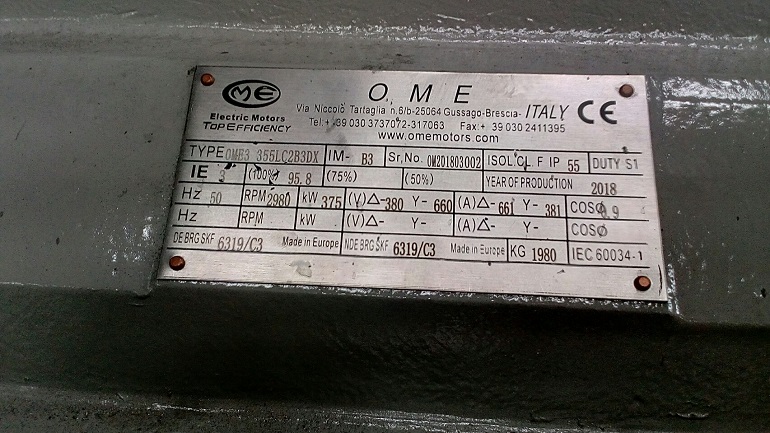 OME
O M E
Electric Motors
TOP EFFICIENCY
Via Niccolò Tartaglia n.6/b-25064 Gussago-Brescia- ITALY CE
Tel:+ 39 030 3737072-317063 Fax:+ 39 030 2411395
www.omemotors.com
TYPE OME3 355LC2B3DX IM- B3 Sr.No. OM201803002 ISOL CL. F IP 55 DUTY S1
IE 3 (100%) 95.8 (75%) (50%) YEAR OF PRODUCTION 2018
Hz 50 RPM 2980 kW 375 (V)Δ-380 Y- 660 (A)Δ- 661 Y- 381 COSØ 0.9
Hz RPM kW (V)Δ- Y- (A)Δ- Y- COSØ
DE BRG SKF 6319/C3 Made in Europe NDE BRG SKF 6319/C3 Made in Europe KG 1980 IEC 60034-1